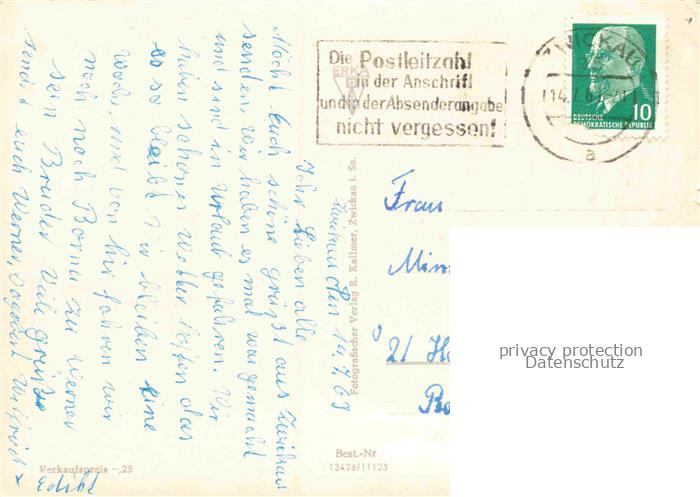 Die Postleitzahl
in der Anschrift
und in der Absenderangabe
nicht vergessen!
ERKA
ZWICKAU
14.7.
a
10
DEUTSCHE
DEMOKRATISCHE REPUBLIK
Zwickau den 14.7.69
Ihr Lieben alle
Möcht Euch schöne Grüße aus Zwickau
senden. Wir haben es mal war gemacht
und sind in Urlaub gefahren. Wir
haben schönes Wetter hoffen das
es so bleibt. Wir bleiben eine
Woche, und von hir fahren wir
noch nach Borna zu Werner
sein Bruder Viele grüße
sendet euch Werner, Wilfried
x Edith
Fotografischer Verlag R. Kallmer, Zwickau i. Sa.
Frau
21
privacy protection
Datenschutz
Best.-Nr
13426/11123
Verkaufspreis -,25